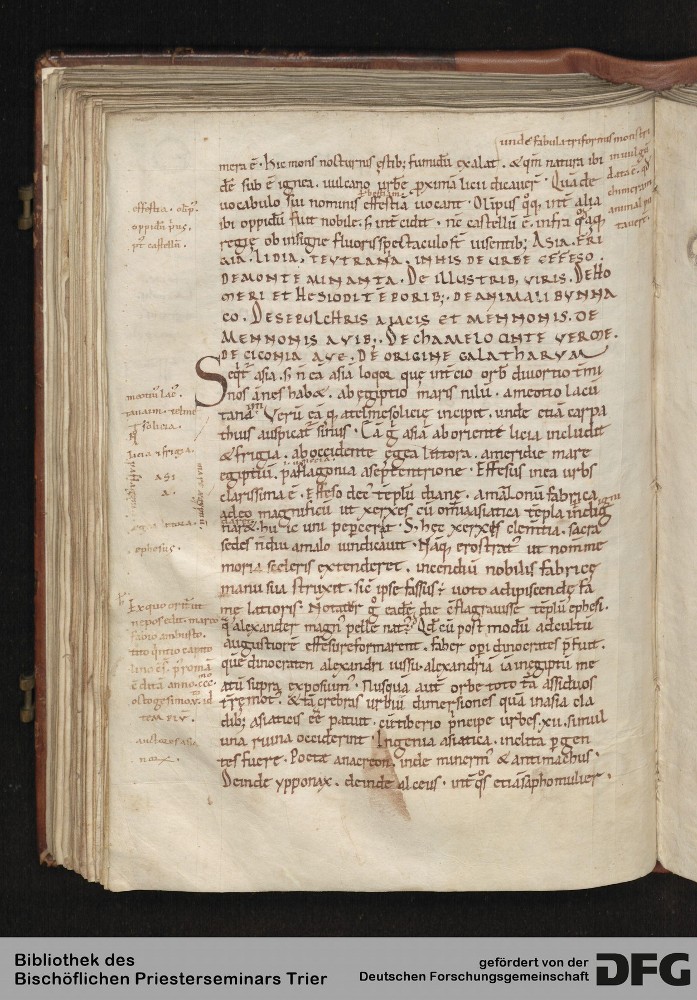 unde fabula triformis monstri
in vulgū
data ē. qđ
chimeram
animal pu
tauer̄.
mera ē. Hic mons nocturnis ęstib; fumidū exalat. & qm̄ natura ibi
dē sub ē ignea. vulcano urbē ꝓximā licii dicauer̄. Quā de
vocabulo sui nominis effestiā vocant. Olipus q͛q. int̄ alia
ibi oppidū fuit nobile. s; int̄cidit. nc̄ castellū ē. infra q͛ aq̄
regię ob insigne fluoris spectaculo sт̄ visentib; ASIA. FRI
GIA. LIDIA. TEUTRANIA. IN HIS DE URBE EFFESO.
DE MONTE MINANTA. DE ILLUSTRIB; VIRIS. DE HO
MERI ET HESIODI TĒPORIB;. DE ANIMALI BVNNA
CO. DE SEPULCHRIS AIACIS ET MENNONIS. DE
MENNONIS AVIB;. DE CHAMELOONTE VERME.
DE CICONIA AVE. DE ORIGINE GALATHARVM
Seqt̄ asia. s; n̄ eā asia loqor quę int̄cio orb̄ divortio t̄mi
nos ān̄es habæ. ab egiptio maris nilū. a meotio lacu
tanaim. Verū eā q̨ a telmesolicię incipit. unde etiā carpa
thius auspicat̄ sinus. Eā g͛ asiā ab oriente licia includit
& frigia. ab occidente ęgea littora. a meridie mare
egiptiū. paflagonia a septentrione. Effesus in ea urbs
clarissima ē. Effeso dec͛ templū dianę. amazonū fabrica
adeo magnificū ut xerxes cū om̄ia asiatica tēpla igni
naræ. huic uni pepercerat. S; hęc xerxes clem̄tia. sacra
sedes n̄ diu a malo vindicauit. Naq̨ erostrat͛ ut nomine
moria sceleris extenderet. incendiū nobilis fabricę
manu sua struxit. sic̄ ipse fassus ē voto adipiscendę fa
me latioris. Notat͛ g͛ eadē die cflagrauisse templū ephesi.
q̄ alexander magn͛ pellę nat͛ ē. Qđ cū post modū ad cultū
augustiorē effesii reformarent. faber opi dinocrates p̄fuit.
quē dinocraten alexandri iussu alexandriā in egiptū me
atū supra exposuim͛. Nusquā aut̄ orbe toto tā assiduos
tr̄emot͛. & tā crebras urbiū dimersiones quā in asia cla
dib; asiaticis cē̄ patuit. cū tiberio p̄ncipe urbes .xii. simul
una ruina occiderint. Ingenia asiatica. inclita p̄ gen
tes fuere. Poetæ anacreon. inde minerm͛ & antimachus.
Deinde ypponax. deinde alceus. int̄ q͛s etiā sapho mulier.
effestia. oli͛p.
oppidū pri͛us.
p͛t castellū.
meotiū lac͛.
tanaim. telme
solicia.
licia & frigia.
ASI
A.
egea litora.
ephesus.
Ex quo orit͛ ut
nepos edit. marco
fabio ambusto.
tito quitio capito
lino cs̄. p͛ romā
cditā anno .ccc.
octogesimo .v. id
tem xlv.
auctores asia
næ.
Bibliothek des
Bischöflichen Priesterseminars Trier
gefördert von der
Deutschen Forschungsgemeinschaft
DFG